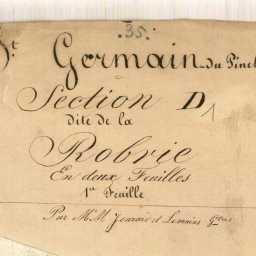 35.
St Germain du Pinel
Section D1
dite de la
Robrie
En deux Feuilles
1re Feuille
Par M.M.